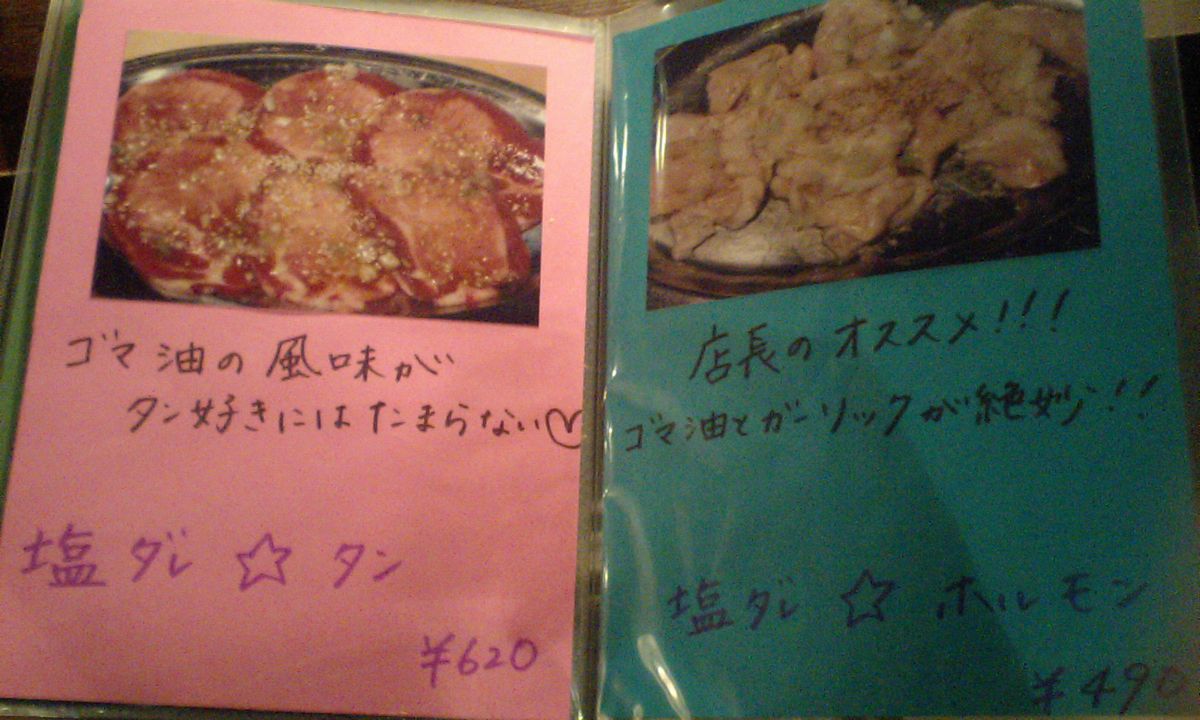 ゴマ油の風味が
タン好きにはたまらない♡
塩ダレ☆タン
¥620
店長のオススメ!!!
ゴマ油とガーリックが絶妙!!
塩ダレ☆ホルモン
¥490